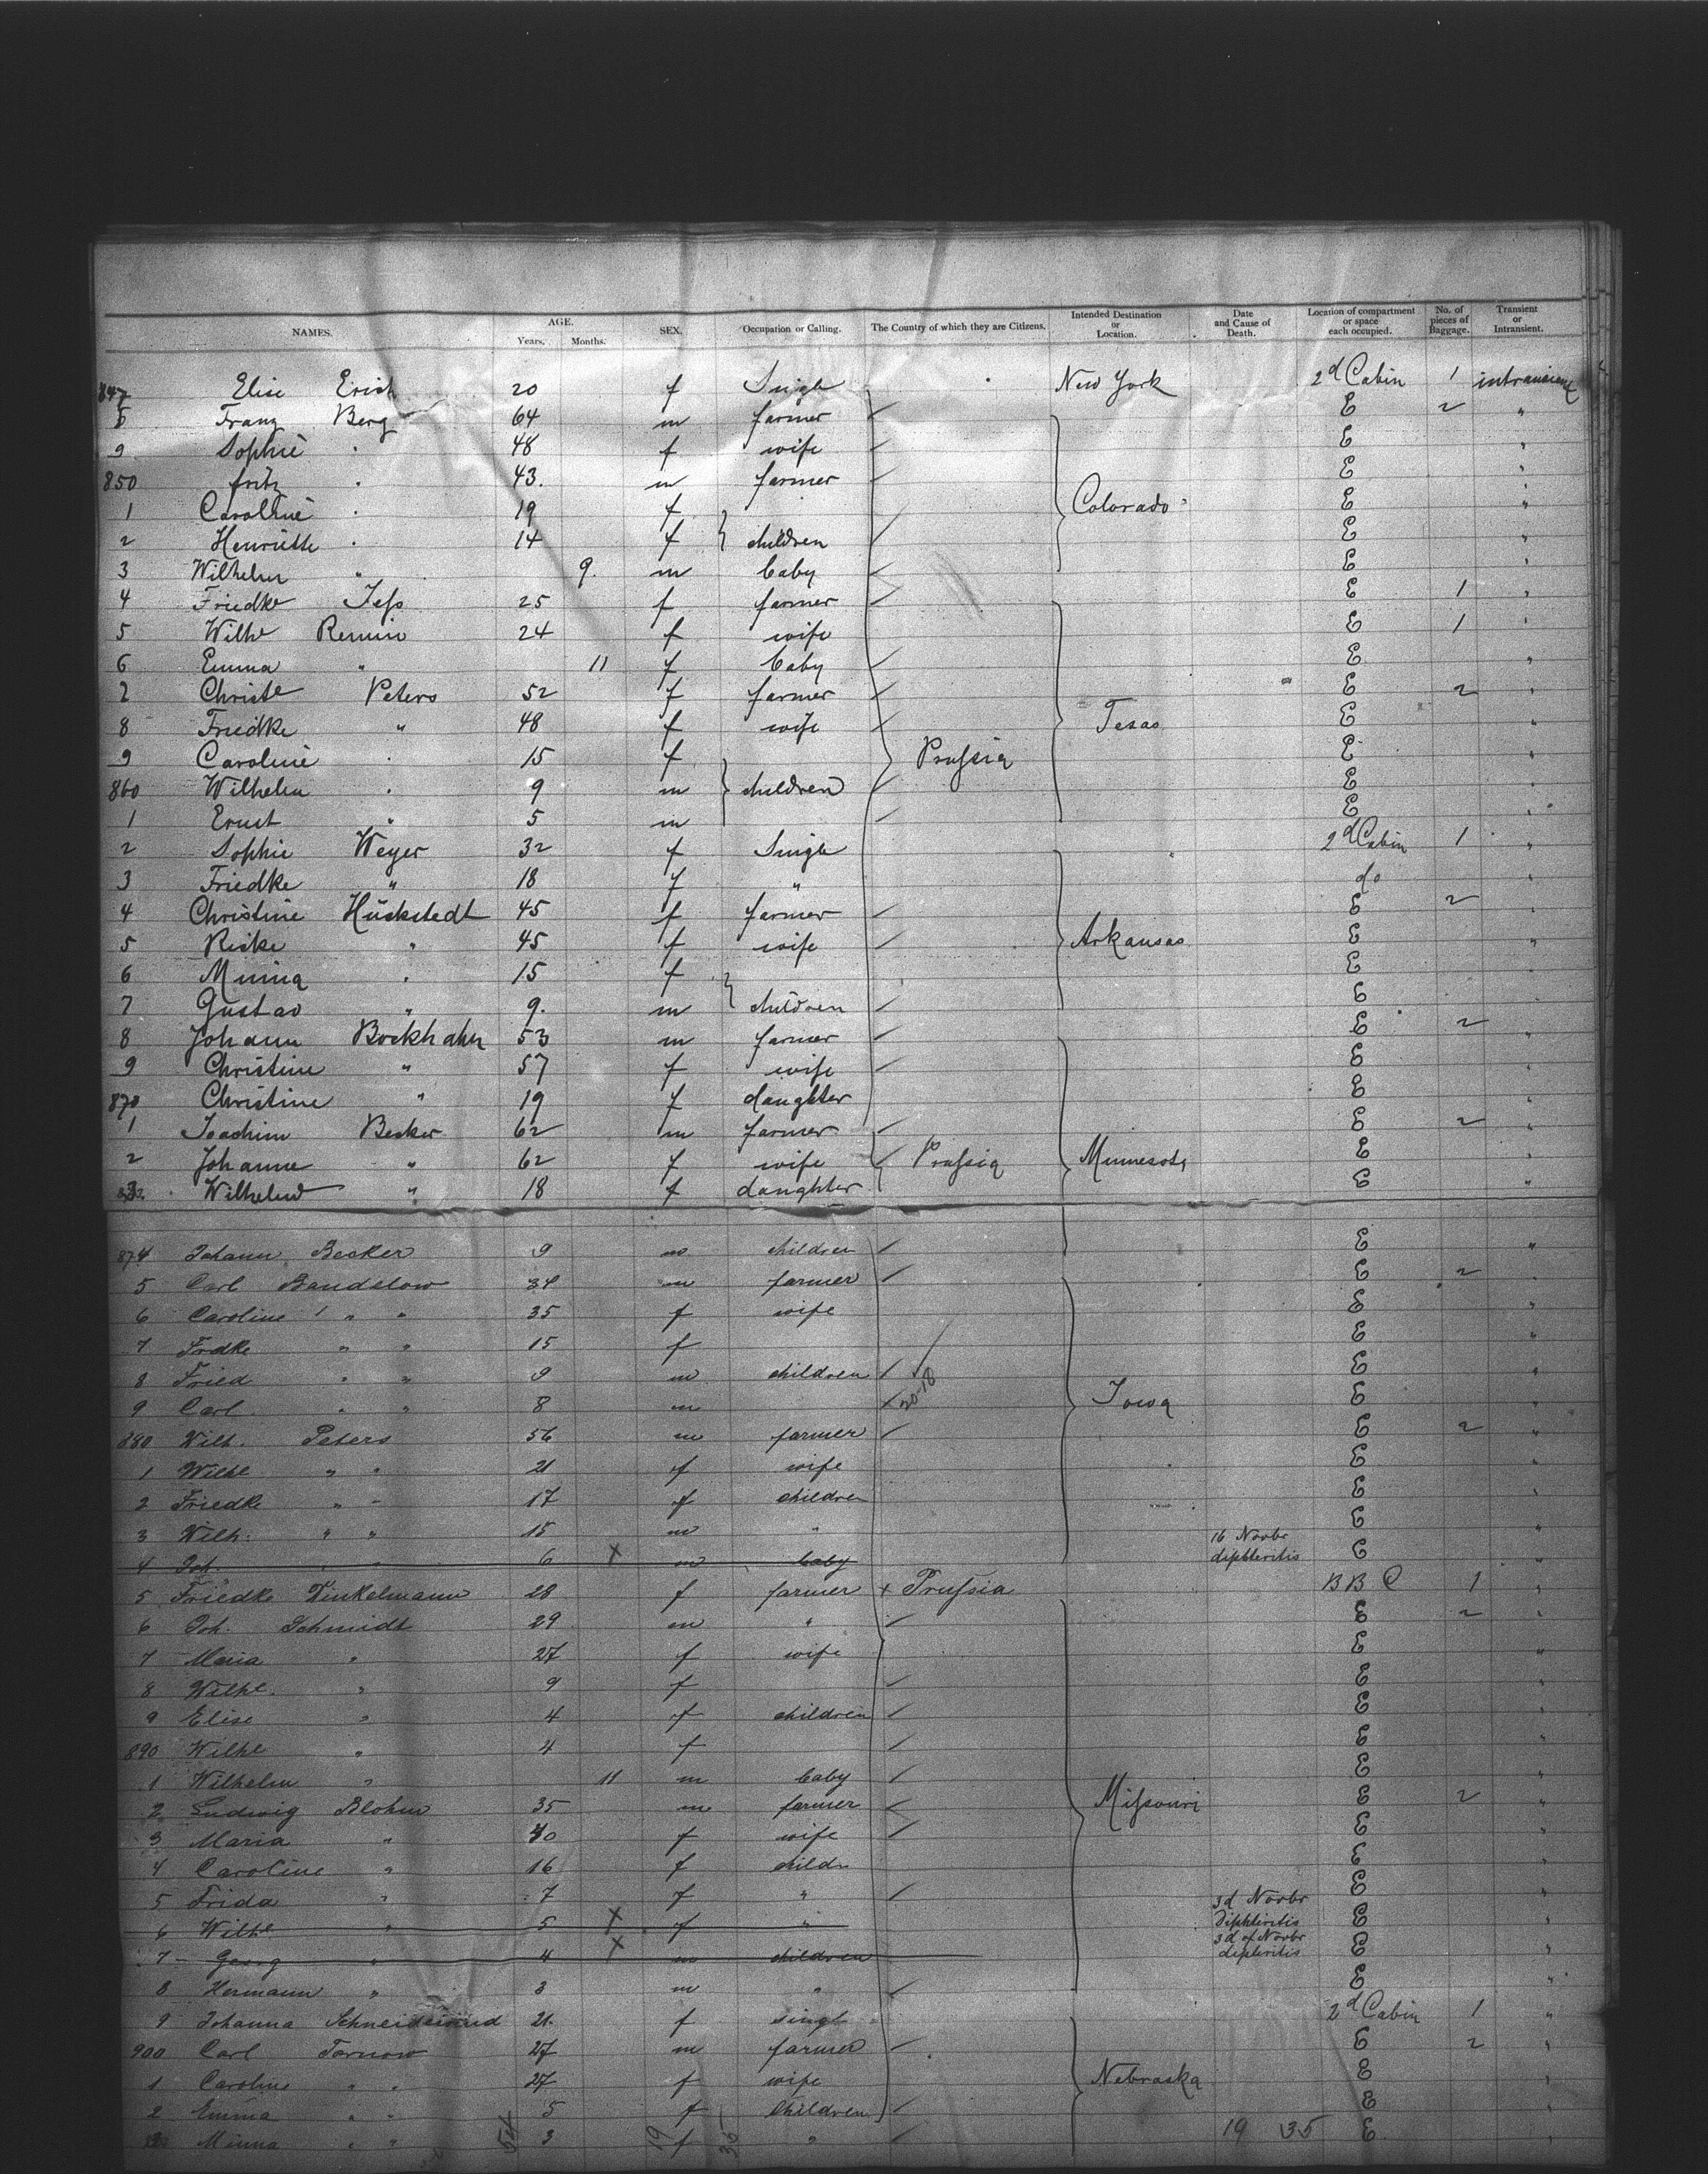 NAMES. AGE. Years. Months. SEX. Occupation or Calling. The Country of which they are Citizens. Intended Destination or Location. Date and Cause of Death. Location of compartment or space each occupied. No. of pieces of Baggage. Transient or Intransient.
847 Elise 20 f Single New York 2d Cabin 1 intransient
8 Franz Berg 64 m farmer E 2 "
9 Sophie " 48 f wife E "
850 fritz " 43. m farmer E "
1 Caroline " 19 f Colorado E "
2 Henriette " 14 f children E "
3 Wilhelm " 9. m baby E "
4 Friedke Jess 25 f farmer E 1 "
5 Wilhe 24 f wife E 1 "
6 Emma " 11 f baby E "
7 Christe Peters 52 f farmer E 2 "
8 Friedke " 48 f wife Texas E "
9 Caroline " 15 f Prussia E "
860 Wilhelm " 9 m children E "
1 Ernst " 5 m E "
2 Sophie Weyer 32 f Single 2d Cabin 1 "
3 Friedke " 18 f " do "
4 Christine Hückstedt 45 f farmer E 2 "
5 Rieke " 45 f wife Arkansas E "
6 Minna " 15 f E
7 Gustav " 9. m children E
8 Johann Bockhahn 53 m farmer E 2 "
9 Christine " 57 f wife E "
870 Christine " 19 f daughter E "
1 Joachim Becker 62 m farmer E 2 "
2 Johanne " 62 f wife Prussia Minnesota E "
3 " 18 f daughter E "
874 Johann Becker 9 m children E "
5 Carl Bandelow 34 m farmer E 2 "
6 Caroline " " 35 f wife E "
7 Frdke " " 15 f E "
8 Fried " " 9 m children E "
9 Carl " " 8 m 20-18 Iowa E "
880 Wilh. Peters 56 m farmer E 2 "
1 Wilhe " " 21 f wife E "
2 Friedke " " 17 f children E "
3 Wilh. " " 15 m " E "
4 Joh. " " 6 x m baby 16 Novbr diphteritis E "
5 Friedke Winkelmann 28 f farmer x Prussia B B C 1 "
6 Joh. Schmidt 29 m " E 2 "
7 Maria " 27 f wife E "
8 Wilhe. " 9 f E "
9 Elise " 4 f children E "
890 Wilhe " 4 f E "
1 Wilhelm " 11 m baby E "
2 Ludwig Blohm 35 m farmer Missouri E 2 "
3 Maria " 40 f wife E "
4 Caroline " 16 f childr E "
5 Frida " 7 f " E "
6 Wilhe " 5 x f " 3d Novbr Diphteritis E "
7 Georg " 4 x m children 3d of Novbr diphteritis E "
8 Hermann " 3 m " E "
9 Johanna Schneidewind 21. f singl 2d Cabin 1 "
900 Carl Tornow 27 m farmer E 2 "
1 Caroline " " 27 f wife Nebraska E "
2 Emma " " 5 f Children E "
3 Minna " " 3 f " 19 35 E "
54 19 35